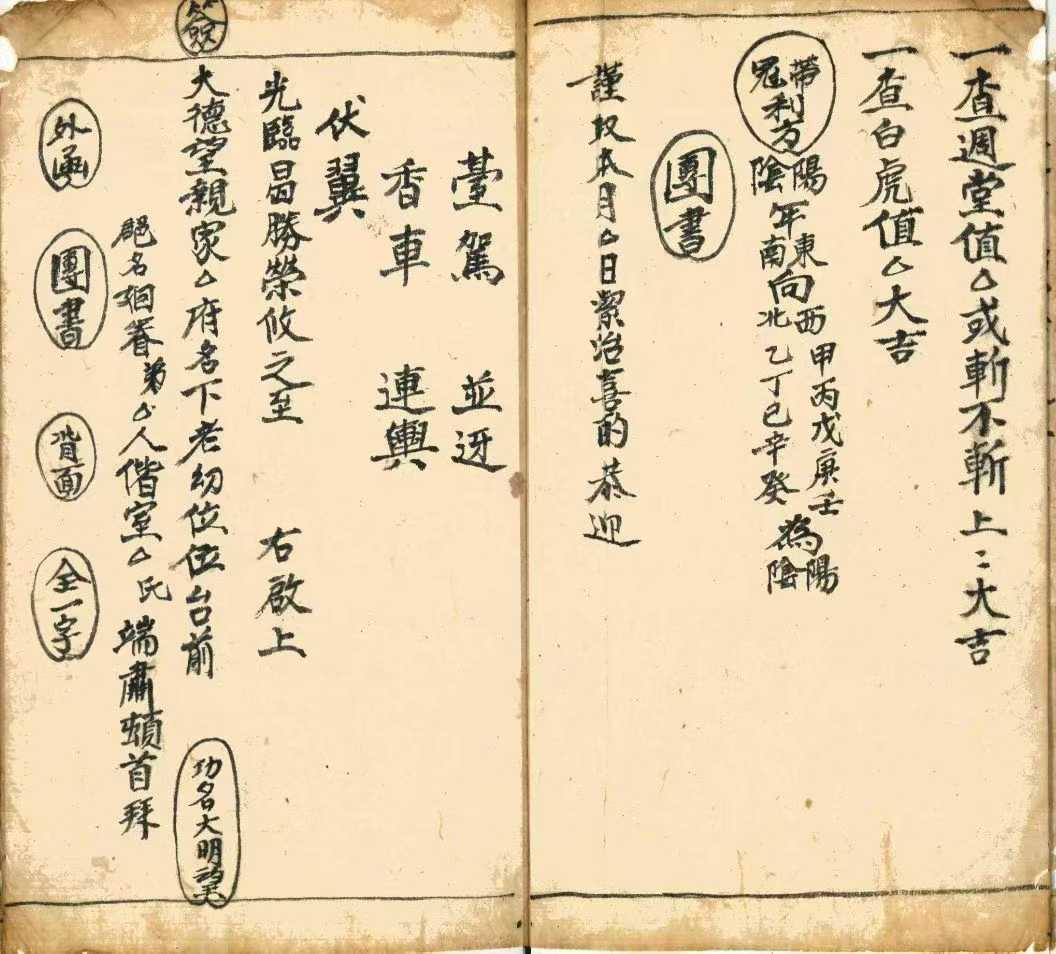 一查週堂值△或斬不斬上:大吉
一查白虎值△大吉
帶冠利方
陽年東向西 甲丙戊庚壬為陽
陰年南向北 乙丁己辛癸為陰
團書
謹取本月△日潔治喜酌恭迎
臺駕 並迓
香車 連輿
伏翼
光臨曷勝榮攸之至 右啟上
大德望親家△府名下老幼位位台前
功名大明
忝名姻眷弟△人偕室△氏端肅頓首拜
外函
團書
背面
全一字